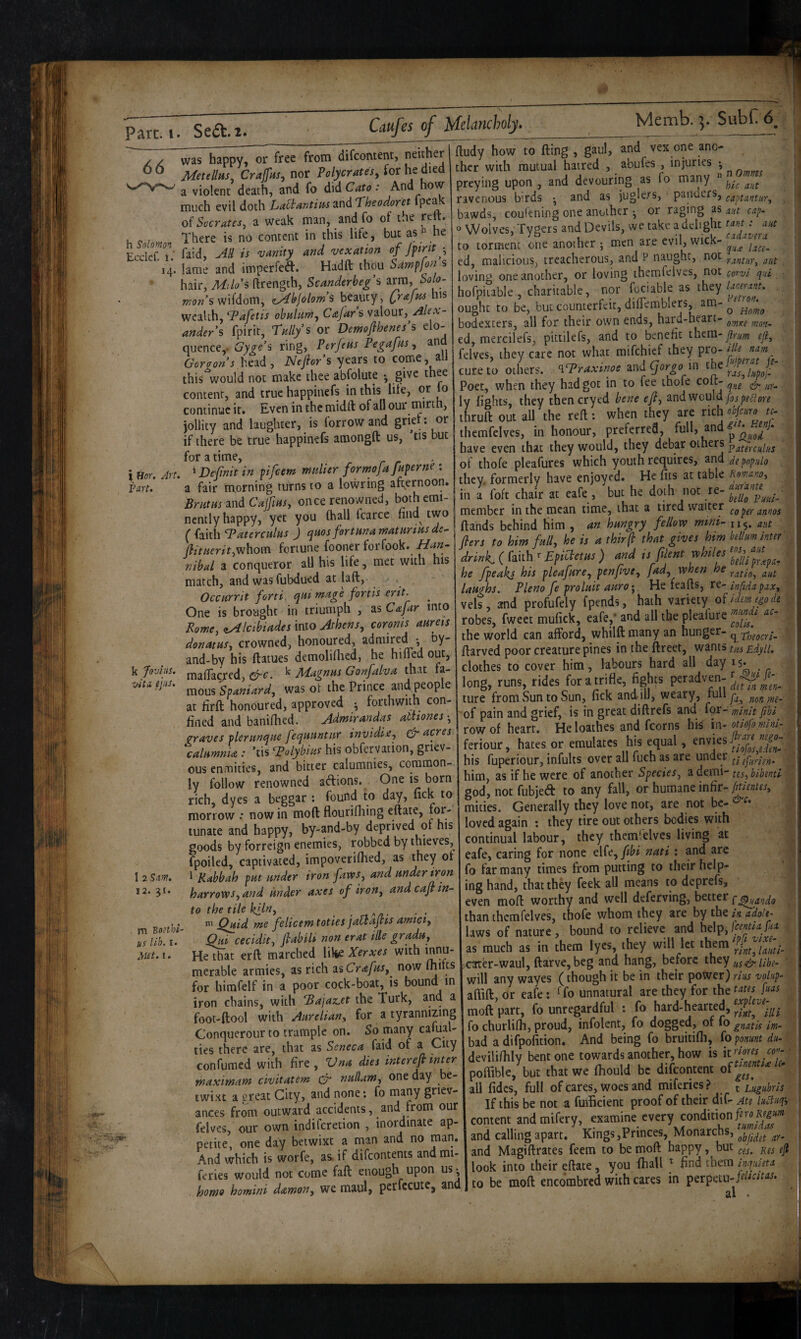 Part. 1. Sect. 2. Causes of Melancholy. Memb. 3. Subs. 6.
66
was happy, or free from discontent, neither
Metellus, Crassus, nor Polycrates, for he died
a violent death, and so did Cato : And how
much evil doth Lactantius and Theodoret speak
of Socrates, a weak man, and so of the rest.
There is no content in this life, but as h he
said, All is vanity and vexation of spirit ;
lame and imperfect. Hadst thou Sampson's
hair, Milo's strength, Scanderbeg's arm, Solo-
mon's wisdom, Absolom's beauty, Crœsus his
wealth, Pasetis obulum, Cæsar's valour, Alex-
ander's spirit, Tully's or Demosthenes's elo-
quence, Gyge's ring, Perseus Pegasus, and
Gorgon's head, Nestor's years to come, all
this would not make thee absolute ; give thee
content, and true happiness in this life, or so
continue it. Even in the midst of all our mirth,
jollity and laughter, is sorrow and grief : or
if there be true happiness amongst us, 'tis but
for a time,
i Definit in piscem mulier formosa superne :
a fair morning turns to a lowring afternoon.
Brutus and Cassius, once renowned, both emi-
nently happy, yet you shall scarce find two
( saith Paterculus ) quos fortuna maturius de-
stituerit, whom fortune sooner forsook. Han-
nibal a conqueror all his life, met with his
match, and was subdued at last,
Occurrit forti qui magè fortis erit.
One is brought in triumph , as Cæsar into
Rome, Alcibiades into Athens, coronis aureis
donatus, crowned, honoured, admired ; by-
and-by his statues demolished, he hissed out,
massacred, &c. k Magnus Gonsalva that fa-
mous Spaniard, was of the Prince and people
at first honoured, approved ; forthwith con-
fined and banished. Admirandas actiones ;
graves plerunque sequuntur invidiæ, & acres
calumniæ : 'tis Polybius his observation, griev-
ous enmities, and bitter calumnies, common-
ly follow renowned actions. One is born
rich, dyes a beggar : sound to day, sick to
morrow : now in most flourishing estate, for-
tunate and happy, by-and-by deprived of his
goods by forreign enemies, robbed by thieves,
spoiled, captivated, impoverished, as they of
l Rabbah put under iron saws, and under iron
harrows, and under axes of iron, and cast in-
to the tile kiln,
m Quid me felicem toties jactastis amici,
Qui cecidit, stabili non erat ille gradu,
He that erst marched like Xerxes with innu-
merable armies, as rich as Crœsus, now shifts
for himself in a poor cock-boat, is bound in
iron chains, with Bajazet the Turk, and a
foot-stool with Aurelian, for a tyrannizing
Conquerour to trample on. So many casual-
ties there are, that as Seneca said of a City
consumed with fire , Una dies interest inter
maximam civitatem & nullam, one day be-
twixt a great City, and none : so many griev-
ances from outward accidents, and from our
selves, our own indiscretion , inordinate ap-
petite, one day betwixt a man and no man.
And which is worse, as if discontents and mi-
series would not come fast enough upon us ;
homo homini dæmon, we maul, persecute, and
h Solomon
Eccles. 1.
14.
i Hor. Art.
Part.
k Jovius.
vita ejus.
l 2 Sam.
12. 31.
m Boethi-
us lib. 1.
Met. 1.
study how to sting , gaul, and vex one ano-
ther with mutual hatred , abuses , injuries ;
preying upon , and devouring as so many n
ravenous birds ; and as juglers, panders,
bawds, cousening one another ; or raging as
o Wolves, Tygers and Devils, we take a delight
to torment one another ; men are evil, wick-
ed, malicious, treacherous, and p naught, not
loving one another, or loving themselves, not
hospitable , charitable, nor sociable as they
ought to be, but counterfeit, dissemblers, am-
bodexters, all for their own ends, hard-heart-
ed, merciless, pittiless, and to benefit them-
selves, they care not what mischief they pro-
cure to others. q Praxinoe and Gorgo in the
Poet, when they had got in to see those cost-
ly sights, they then cryed bene est, and would
thrust out all the rest : when they are rich
themselves, in honour, preferred, full, and
have even that they would, they debar others
of those pleasures which youth requires, and
they formerly have enjoyed. He sits at table
in a soft chair at ease , but he doth not re-
member in the mean time, that a tired waiter
stands behind him , an hungry fellow mini-
sters to him full, he is a thirst that gives him
drink, ( saith r Epictetus ) and is silent whiles
he speaks his pleasure, pensive, sad, when he
laughs. Pleno se proluit auro ; He feasts, re-
vels , and profusely spends, hath variety of
robes, sweet musick, ease, and all the pleasure
the world can afford, whilst many an hunger-
starved poor creature pines in the street, wants
clothes to cover him , labours hard all day
long, runs, rides for a trifle, fights peradven-
ture from Sun to Sun, sick and ill, weary, full
of pain and grief, is in great distress and sor-
row of heart. He loathes and scorns his in-
feriour, hates or emulates his equal , envies
his superiour, insults over all such as are under
him, as if he were of another Species, a demi-
god, not subject to any fall, or humane infir-
mities. Generally they love not, are not be-
loved again : they tire out others bodies with
continual labour, they themselves living at
ease, caring for none else, sibi nati : and are
so far many times from putting to their help-
ing hand, that they seek all means to depress,
even most worthy and well deserving, better
than themselves, those whom they are by the
laws of nature , bound to relieve and help,
as much as in them lyes, they will let them
cater-waul, starve, beg and hang, before they
will any wayes ( though it be in their power)
assist, or ease : f so unnatural are they for the
most part, so unregardful : so hard-hearted,
so churlish, proud, insolent, so dogged, of so
bad a disposition. And being so bruitish, so
devilishly bent one towards another, how is it
possible, but that we should be discontent of
all sides, full of cares, woes and miseries?
If this be not a sufficient proof of their dis-
content and misery, examine every condition
and calling apart. Kings, Princes, Monarchs,
and Magistrates seem to be most happy , but
look into their estate , you shall t find them
to be most encombred with cares in perpetu-
al
n Omnes
hic aut
captantur,
aut cap-
tant : aut
cadavera
quæ lace-
rantur, aut
corvi qui
lacerant.
Petron.
o Homo
omne mon-
strum est,
ille nam
superat fe-
ras, lupos-
que & ur-
sos pectore
obscuro te-
git. Hens.
p Quod
Paterculus
de populo
Romano,
durante
bello Puni-
co per annos
115. aut
bellum inter
eos, aut
belli præpa-
ratio, aut
infida pax,
idem ego de
mundi ac-
colis.
q Theocri-
tus Edyll.
15.
r Qui se-
det in men-
sa, non me-
minit sibi
otioso mini-
strare nego-
tiosos, eden-
ti esurien-
tes, bibenti
sitientes,
&c.
f Quando
in adole-
scentia sua
ipsi vixe-
rint, lauti-
us & libe-
rius volup-
tates suas
expleve-
rint, illi
gnatis im-
ponunt du-
riores con-
tinentiæ le-
ges.
t Lugubris
Ate luctuq;
fero Regum
tumidas
obsidet ar-
ces. Res est
inquieta
felicitas.